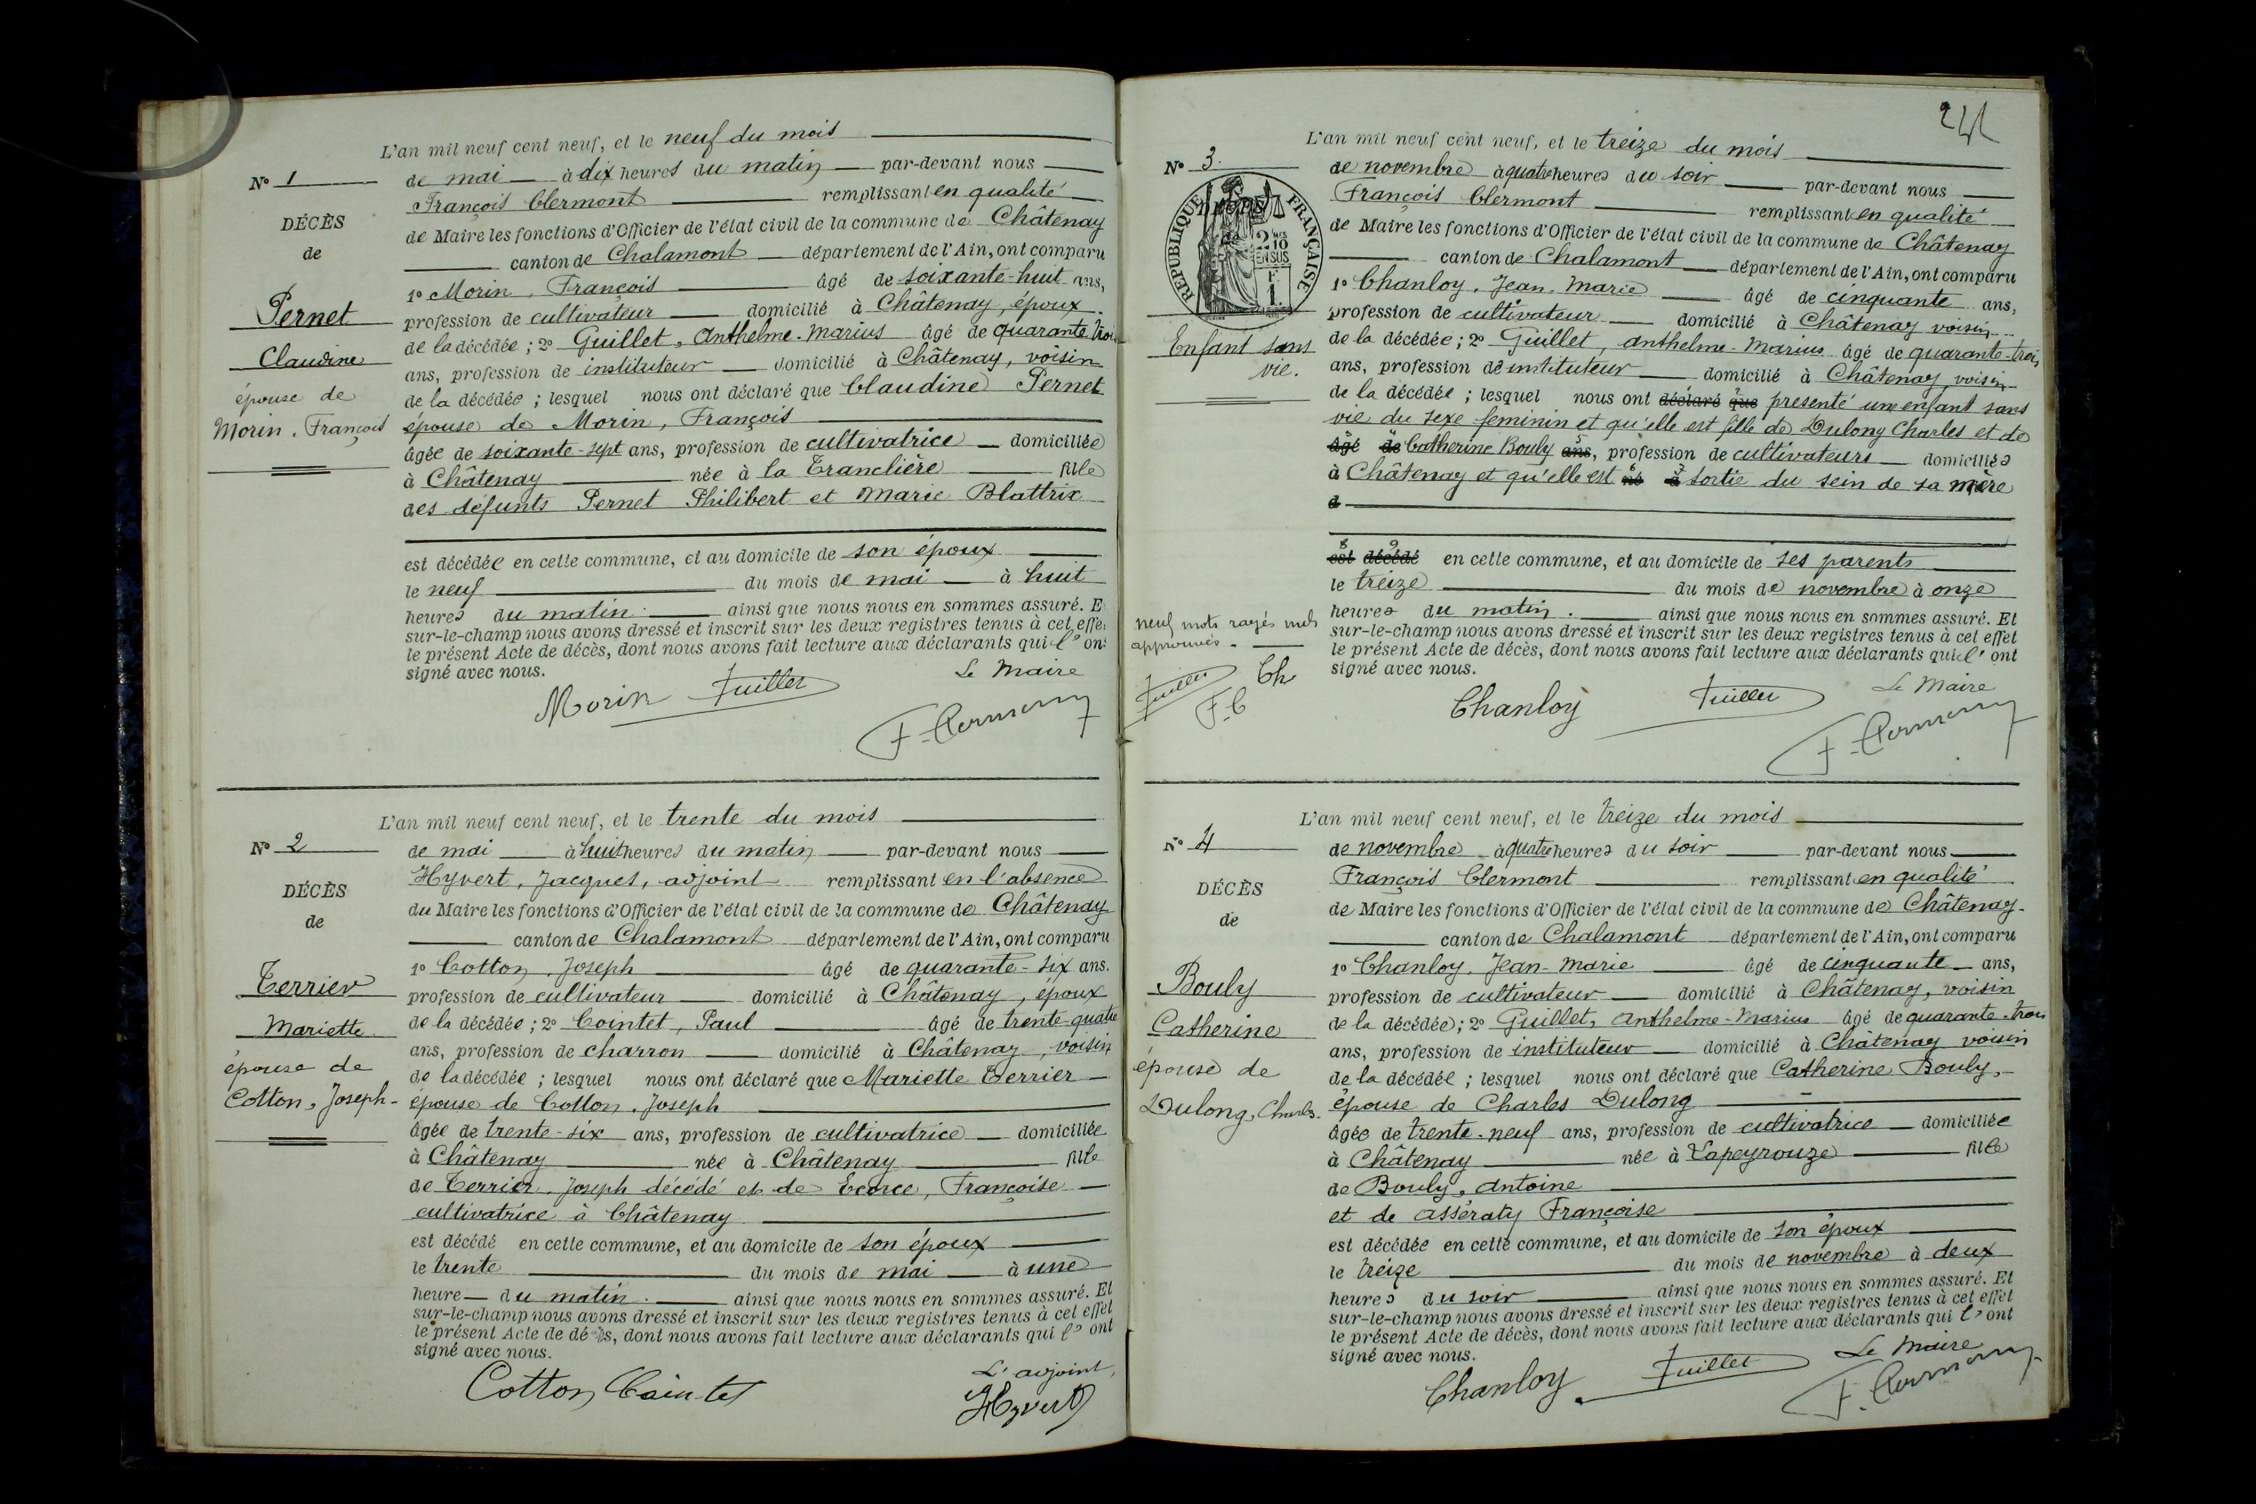 L'an mil neuf cent neuf, et le neuf du mois
N° 1
de mai à dix heures du matin par-devant nous
François Clermont remplissant en qualité
DÉCÈS
de Maire les fonctions d'Officier de l'état civil de la commune de Châtenay
de
canton de Chalamont département de l'Ain, ont comparu
1° Morin, François âgé de soixante-huit ans,
Pernet
profession de cultivateur domicilié à Châtenay, époux
de la décédée ; 2° Guillet, Anthelme-Marius âgé de quarante-trois
Claudine
ans, profession de instituteur domicilié à Châtenay, voisin
de la décédée ; lesquel nous ont déclaré que Claudine Pernet
épouse de
Morin, François
épouse de Morin, François
âgée de soixante-sept ans, profession de cultivatrice domiciliée
à Châtenay née à la Tranclière fille
des défunts Pernet Philibert et Marie Blattrix
est décédée en cette commune, et au domicile de son époux
le neuf du mois de mai à huit
heures du matin. ainsi que nous nous en sommes assuré. E
sur-le-champ nous avons dressé et inscrit sur les deux registres tenus à cet effe
le présent Acte de décès, dont nous avons fait lecture aux déclarants qui l' ont
signé avec nous.
Le Maire
Morin Guillet
F. Clermont
L'an mil neuf cent neuf, et le trente du mois
N° 2
de mai à huit heures du matin par-devant nous
Hyvert, Jacques, adjoint remplissant en l'absence
DÉCÈS
du Maire les fonctions d'Officier de l'état civil de la commune de Châtenay
de
canton de Chalamont département de l'Ain, ont comparu
1° Cotton, Joseph âgé de quarante-six ans.
Terrier
profession de cultivateur domicilié à Châtenay, époux
Mariette
de la décédée ; 2° Cointet, Paul âgé de trente-quatre
ans, profession de charron domicilié à Châtenay, voisin
épouse de
de la décédée ; lesquel nous ont déclaré que Mariette Terrier
Cotton, Joseph-
épouse de Cotton, Joseph
âgée de trente-six ans, profession de cultivatrice domiciliée
à Châtenay née à Châtenay fille
de Terrier, Joseph décédé et de Ecorce, Françoise
cultivatrice à Châtenay
est décédé en cette commune, et au domicile de son époux
le trente du mois de mai à une
heure du matin. ainsi que nous nous en sommes assuré. Et
sur-le-champ nous avons dressé et inscrit sur les deux registres tenus à cet effet
le présent Acte de décès, dont nous avons fait lecture aux déclarants qui l' ont
signé avec nous.
L'adjoint,
Cotton Cointet
JHyvert
241
L'an mil neuf cent neuf, et le treize du mois
N° 3.
de novembre à quatre heures du soir par-devant nous
François Clermont remplissant en qualité
RÉPUBLIQUE FRANÇAISE
2/10 EN SUS
F 1.
de Maire les fonctions d'Officier de l'état civil de la commune de Châtenay
canton de Chalamont département de l'Ain, ont comparu
1° Chanloy, Jean-Marie âgé de cinquante ans,
profession de cultivateur domicilié à Châtenay voisin
Enfant sans
vie.
de la décédée ; 2° Guillet, Anthelme-Marius âgé de quarante-trois
ans, profession de instituteur domicilié à Châtenay, voisin
de la décédée ; lesquel nous ont déclaré que presenté un enfant sans
vie du sexe feminin et qu'elle est fille de Dulong Charles et de
âgé de Catherine Bouly ans, profession de cultivateurs domiciliés
à Châtenay et qu'elle est né à sortie du sein de sa mère
d
8 9
est décédé en cette commune, et au domicile de ses parents
le treize du mois de novembre à onze
heures du matin. ainsi que nous nous en sommes assuré. Et
neuf mots rayés nuls
approuvés.
sur-le-champ nous avons dressé et inscrit sur les deux registres tenus à cet effet
le présent Acte de décès, dont nous avons fait lecture aux déclarants qui l' ont
signé avec nous.
Guillet Ch
F. C
Le Maire
Chanloy Guillet
F. Clermont
L'an mil neuf cent neuf, et le treize du mois
N° 4
de novembre à quatre heures du soir par-devant nous
François Clermont remplissant en qualité
DÉCÈS
de Maire les fonctions d'Officier de l'état civil de la commune de Châtenay-
de
canton de Chalamont département de l'Ain, ont comparu
1° Chanloy, Jean-Marie âgé de cinquante ans,
Bouly
profession de cultivateur domicilié à Châtenay, voisin
Catherine
de la décédée ; 2° Guillet, Anthelme-Marius âgé de quarante-trois
ans, profession de instituteur domicilié à Châtenay voisin
épouse de
de la décédée ; lesquel nous ont déclaré que Catherine Bouly,
Dulong, Charles.
épouse de Charles Dulong
âgée de trente-neuf ans, profession de cultivatrice domiciliée
à Châtenay née à Lapeyrouze fille
de Bouly, Antoine
et de Asseraty Françoise
est décédée en cette commune, et au domicile de son époux
le treize du mois de novembre à deux
heures du soir ainsi que nous nous en sommes assuré. Et
sur-le-champ nous avons dressé et inscrit sur les deux registres tenus à cet effet
le présent Acte de décès, dont nous avons fait lecture aux déclarants qui l' ont
signé avec nous.
Le Maire
Chanloy Guillet
F. Clermont